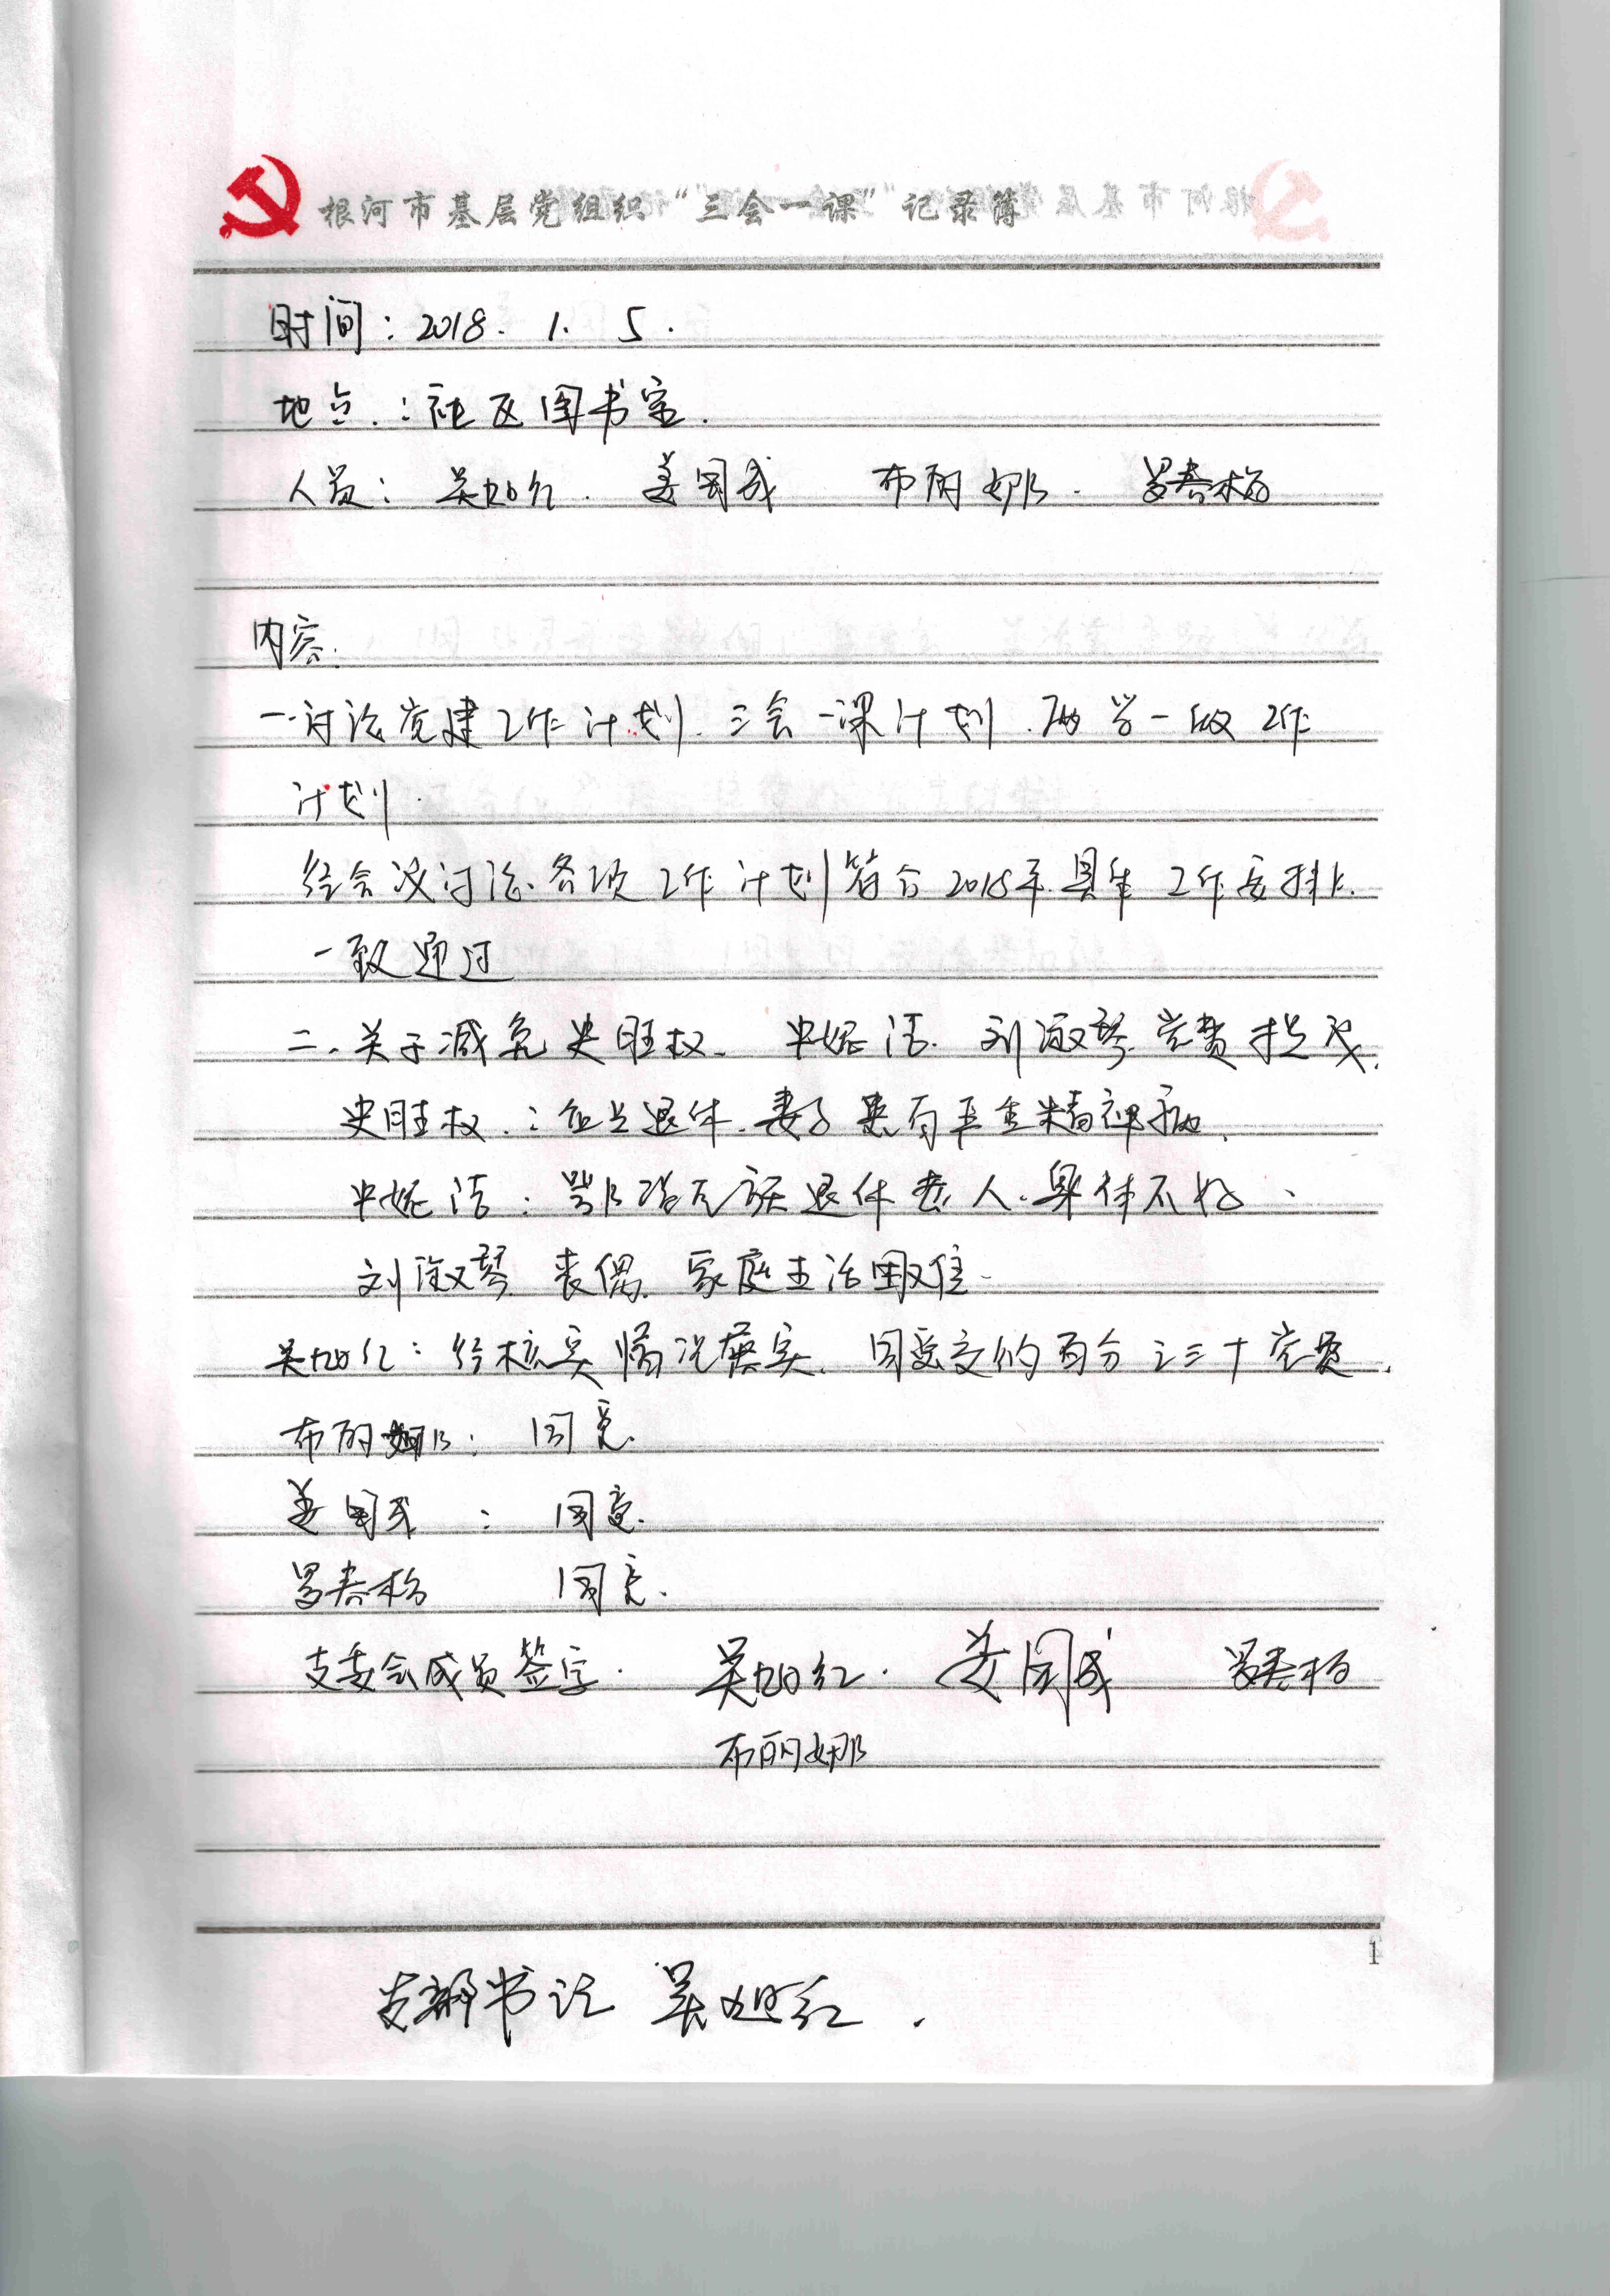 根河市基层党组织“三会一课”记录簿
时间：2018. 1. 5.
地点：社区图书室.
人员：吴旭红. 姜国成 布丽娜. 吕春梅
内容.
一.讨论党建工作计划.三会一课计划.两学一做工作
计划.
经会议讨论.各项工作计划符合2018年具体工作安排.
一致通过
二.关于减免史胜权. 刘淑琴.党费提议.
史胜权.：企业退休.妻子患有严重精神病.
：鄂温克族退休老人.身体不好、
刘淑琴 丧偶.家庭生活困难
吴旭红：经核实情况属实.同意交纳百分之三十党费.
布丽娜：同意.
姜国成：同意.
吕春梅 同意.
支委会成员签字. 吴旭红. 姜国成 吕春梅
布丽娜
1
支部书记 吴旭红.